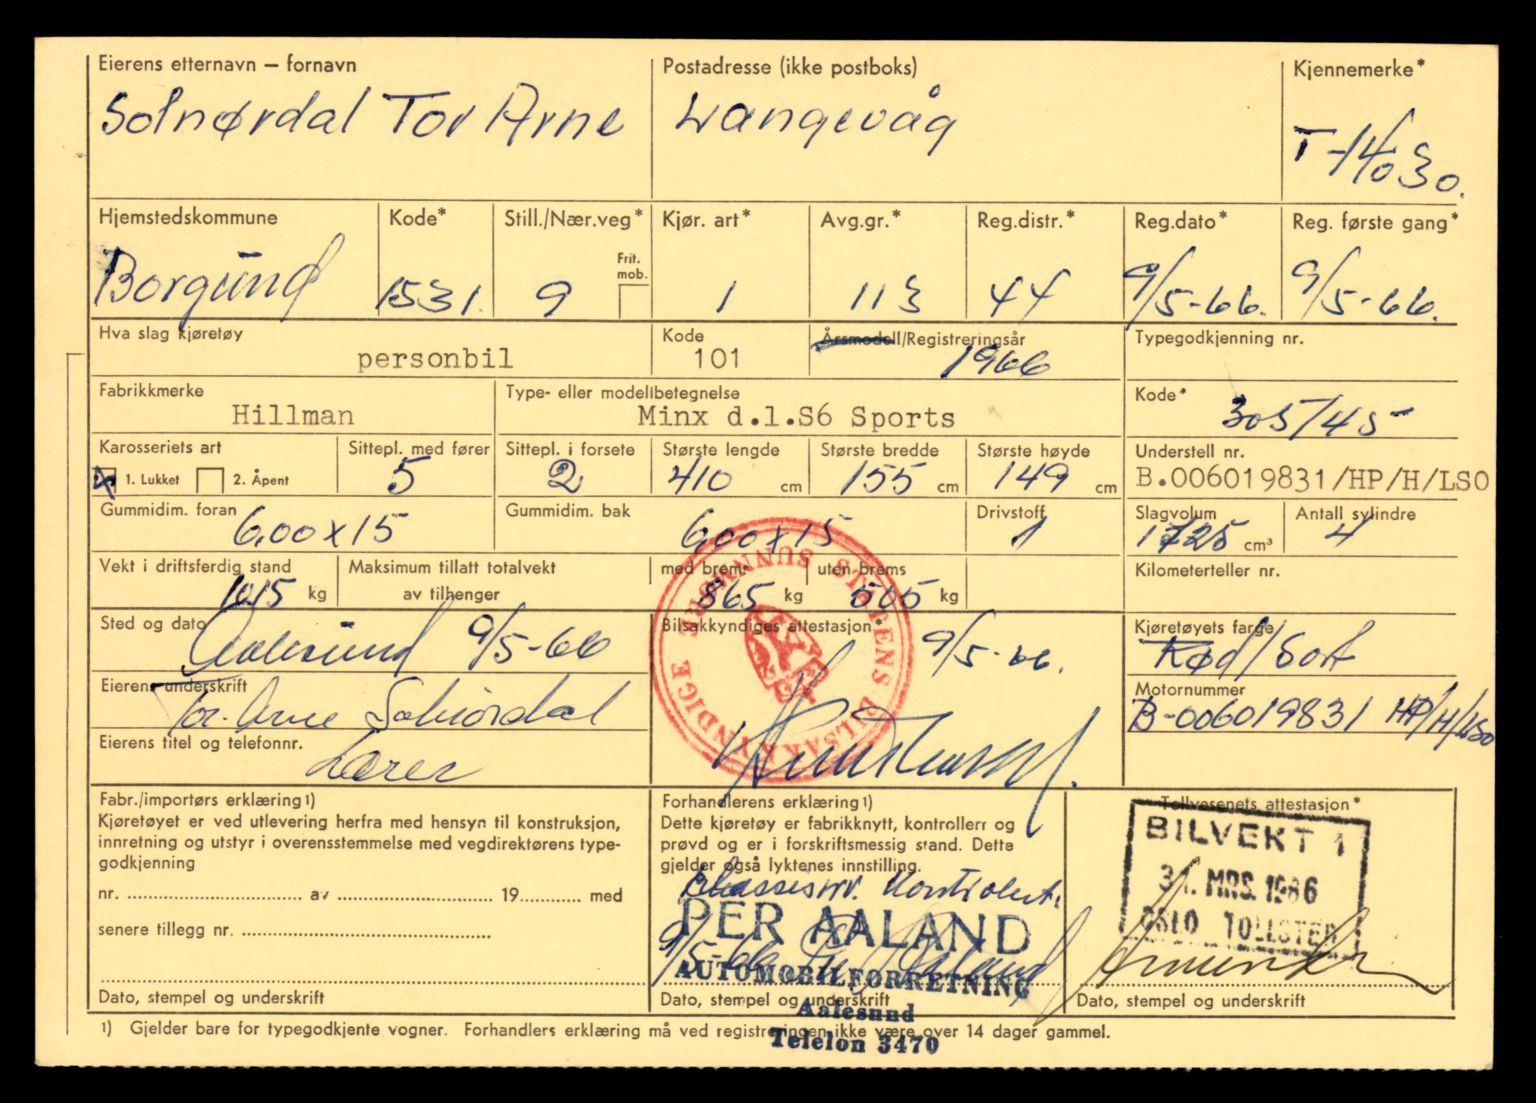 Eierens etternavn – fornavn
Solnørdal Tor Arne
Postadresse (ikke postboks)
Langevåg
Kjennemerke*
T-14030.
Hjemstedskommune
Borgund
Kode*
1531.
Still./Nær.veg*
9
Frit. mob.
Kjør. art*
1
Avg.gr.*
113
Reg.distr.*
44
Reg.dato*
9/5-66.
Reg. første gang*
9/5-66.
Hva slag kjøretøy
personbil
Kode
101
Årsmodell/Registreringsår
1966
Typegodkjenning nr.
Fabrikkmerke
Hillman
Type- eller modellbetegnelse
Minx d.l.S6 Sports
Kode*
305/45
Karosseriets art
1. Lukket 2. Åpent
Sittepl. med fører
5
Sittepl. i forsete
2
Største lengde
410 cm
Største bredde
155 cm
Største høyde
149 cm
Understell nr.
B.006019831/HP/H/LSO
Gummidim. foran
6,00 x 15
Gummidim. bak
6,00 x 15
Drivstoff
1
Slagvolum
1725 cm³
Antall sylindre
4
Vekt i driftsferdig stand
1015 kg
Maksimum tillatt totalvekt
av tilhenger
med brems
865 kg
uten brems
505 kg
Kilometerteller nr.
Sted og dato
Aalesund 9/5-66
Bilsakkyndiges attestasjon*
9/5-66.
STATENS BILSAKKYNDIGE SUNNMØRE
Kjøretøyets farge
Rød/Sort
Eierens underskrift
Tor-Arne Solnørdal
Motornummer
B-006019831 HP/H/LSO
Eierens titel og telefonnr.
Lærer
Fabr./importørs erklæring 1)
Kjøretøyet er ved utlevering herfra med hensyn til konstruksjon,
innretning og utstyr i overensstemmelse med vegdirektørens type-
godkjenning
nr. .............. av .............. 19.......... med
senere tillegg nr. ..............
Dato, stempel og underskrift
Forhandlerens erklæring 1)
Dette kjøretøy er fabrikknytt, kontrollert og
prøvd og er i forskriftsmessig stand. Dette
gjelder også lyktenes innstilling.
Chassisnr. Kontrolert.
PER AALAND
9/5-66 Per Aaland
AUTOMOBILFORRETNING
Dato, stempel og underskrift
Aalesund
Telefon 3470
Tollvesenets attestasjon*
BILVEKT 1
31. MRS. 1966
OSLO TOLLSTED
Dato, stempel og underskrift
1) Gjelder bare for typegodkjente vogner. Forhandlers erklæring må ved registreringen ikke være over 14 dager gammel.